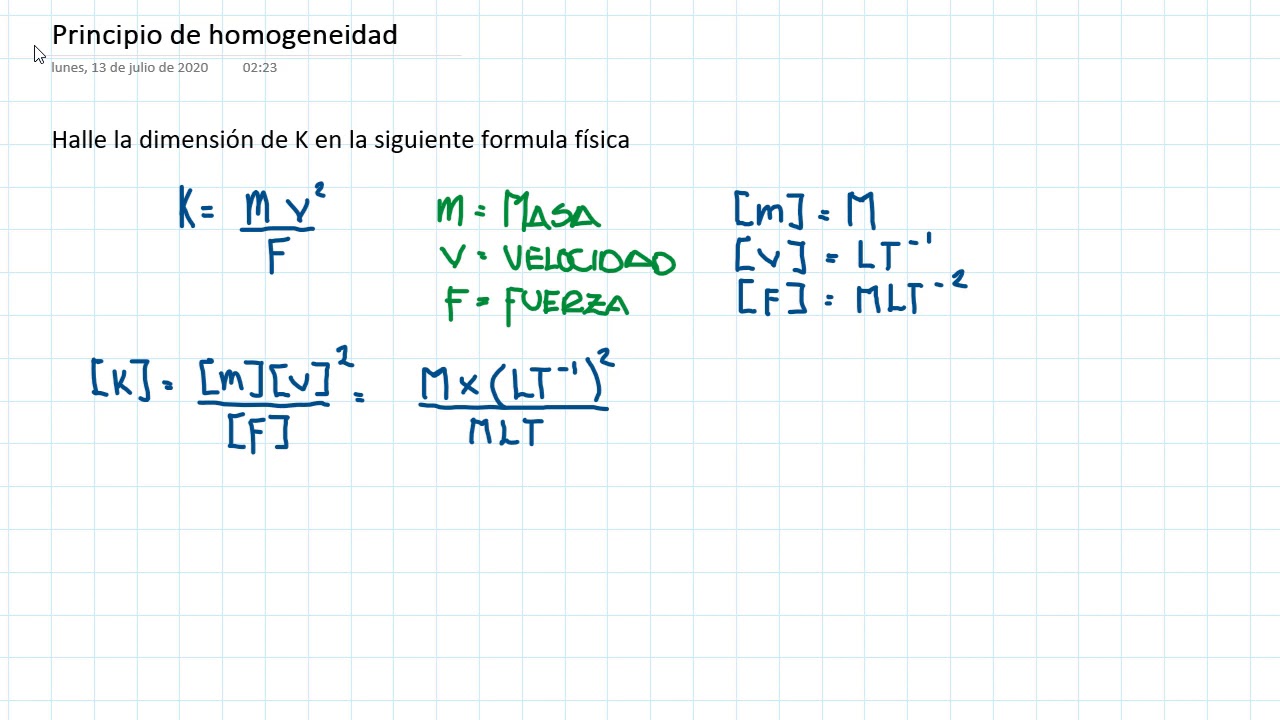 Principio de homogeneidad
lunes, 13 de julio de 2020 02:23
Halle la dimensión de K en la siguiente formula física
K = m v² / F
m = MASA
v = VELOCIDAD
F = FUERZA
[m] = M
[v] = LT⁻¹
[F] = MLT⁻²
[K] = [m][v]² / [F] = M × (LT⁻¹)² / MLT